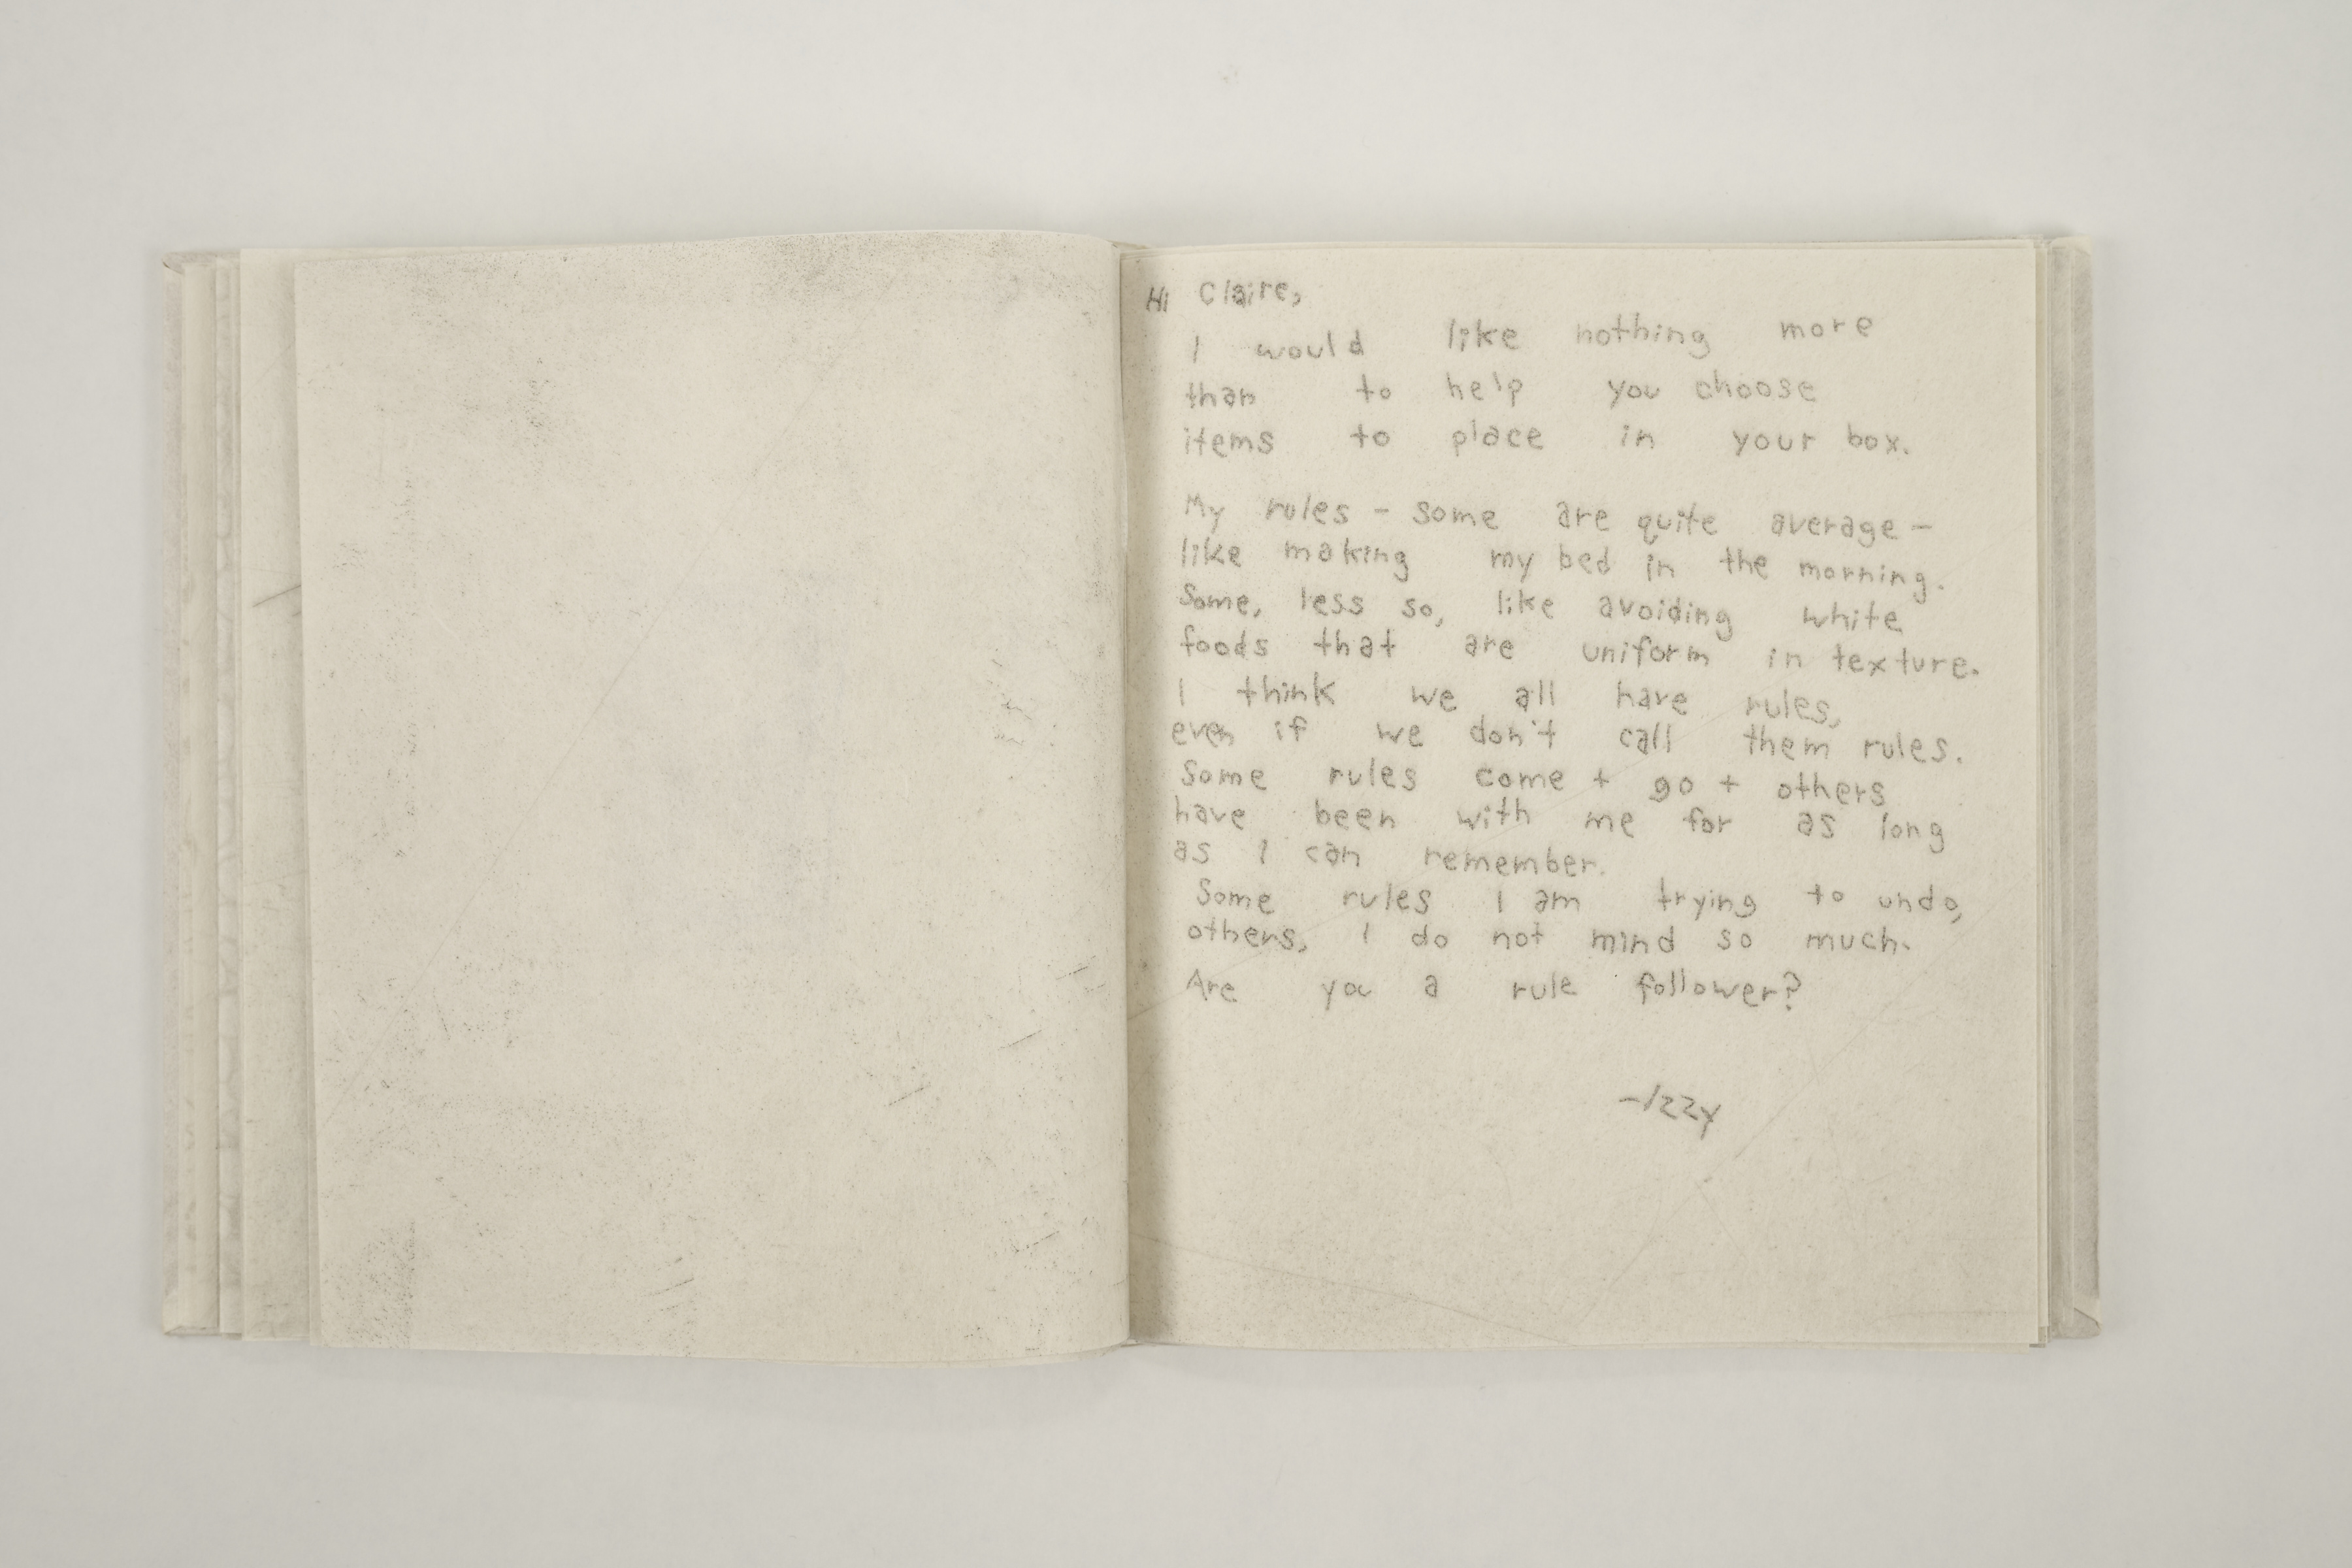 Hi Claire,
I would like nothing more
than to help you choose
items to place in your box.
My rules - some are quite average -
like making my bed in the morning.
Some, less so, like avoiding white
foods that are uniform in texture.
I think we all have rules,
even if we don't call them rules.
Some rules come + go + others
have been with me for as long
as I can remember.
Some rules I am trying to undo,
others, I do not mind so much.
Are you a rule follower?
-Izzy